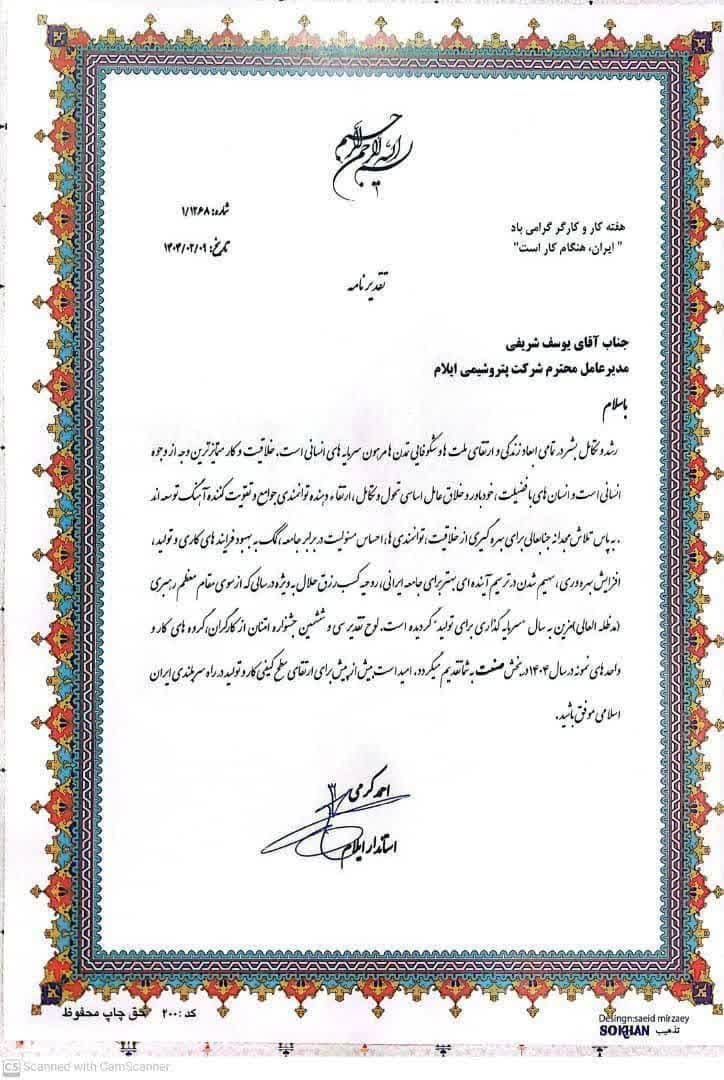 بسم الله الرحمن الرحیم
شماره: ۱/۱۲۶۸
تاریخ: ۱۴۰۴/۰۲/۰۹
هفته کار و کارگر گرامی باد
" ایران، هنگام کار است"
تقدیرنامه
جناب آقای یوسف شریفی
مدیرعامل محترم شرکت پتروشیمی ایلام
باسلام
رشد و تکامل بشر در تمامی ابعاد زندگی و ارتقای ملت ها و شکوفایی تمدن ها مرهون سرمایه های انسانی است. خلاقیت و کار متمایزترین وجه از وجوه
انسانی است و انسان های با فضیلت، خودباور و خلاق عامل اساسی تحول و تکامل، ارتقاء دهنده توانمندی جوامع و تقویت کننده آهنگ توسعه اند
. به پاس تلاش مجدانه جنابعالی برای بهره گیری از خلاقیت، توانمندی ها، احساس مسئولیت در برابر جامعه، کمک به بهبود فرایند های کاری و تولید،
افزایش بهره وری، سهیم شدن در ترسیم آینده ای بهتر برای جامعه ایرانی، روحیه کسب رزق حلال به ویژه در سالی که از سوی مقام معظم رهبری
(مدظله العالی) مزین به سال "سرمایه گذاری برای تولید" گردیده است. لوح تقدیر سی و ششمین جشنواره امتنان از کارگران، گروه های کار و
واحدهای نمونه در سال ۱۴۰۴ در بخش صنعت به شما تقدیم میگردد. امید است بیش از پیش برای ارتقای سطح کیفی کار و تولید در راه سربلندی ایران
اسلامی موفق باشید.
احمد کرمی
استاندار ایلام
حق چاپ محفوظ کد : ۲۰۰
Desingn:saeid mirzaey
SOKHAN تذهیب
CS Scanned with CamScanner